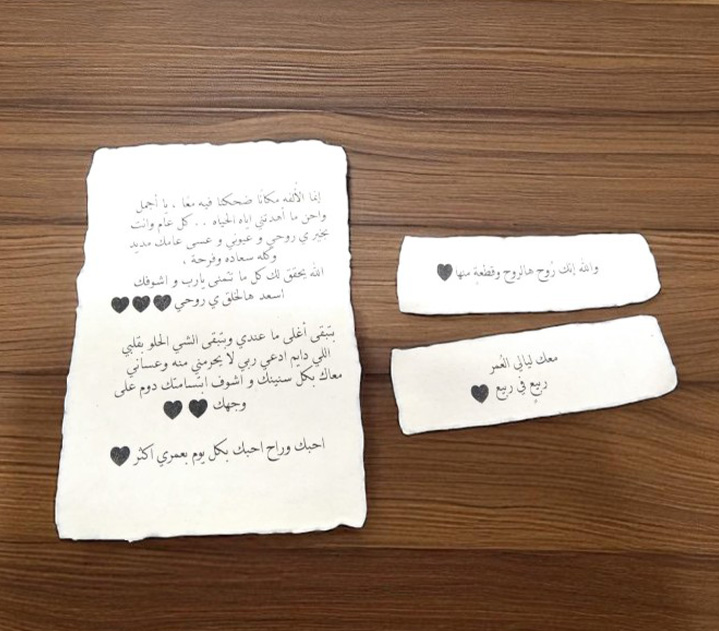 إنما الألفه مكانًا ضحكنا فيه معًا . يا أجمل
واحن ما أهدتني اياه الحياه . . كل عام وانت
بخير ي روحي و عيوني و عسى عامك مديد
وكله سعاده وفرحة ،
الله يحقق لك كل ما تتمنى يارب و اشوفك
اسعد هالخلق ي روحي 🖤🖤🖤
بتبقى أغلى ما عندي وبتبقى الشي الحلو بقلبي
اللي دايم ادعي ربي لا يحرمني منه وعساني
معاك بكل سنينك و اشوف ابتسامتك دوم على
وجهك 🖤🖤
احبك وراح احبك بكل يوم بعمري اكثر 🖤
والله إنك رُوح هالروح وقطعةٍ منها 🖤
معك ليالي العُمر
ربيعٍ في ربيع 🖤